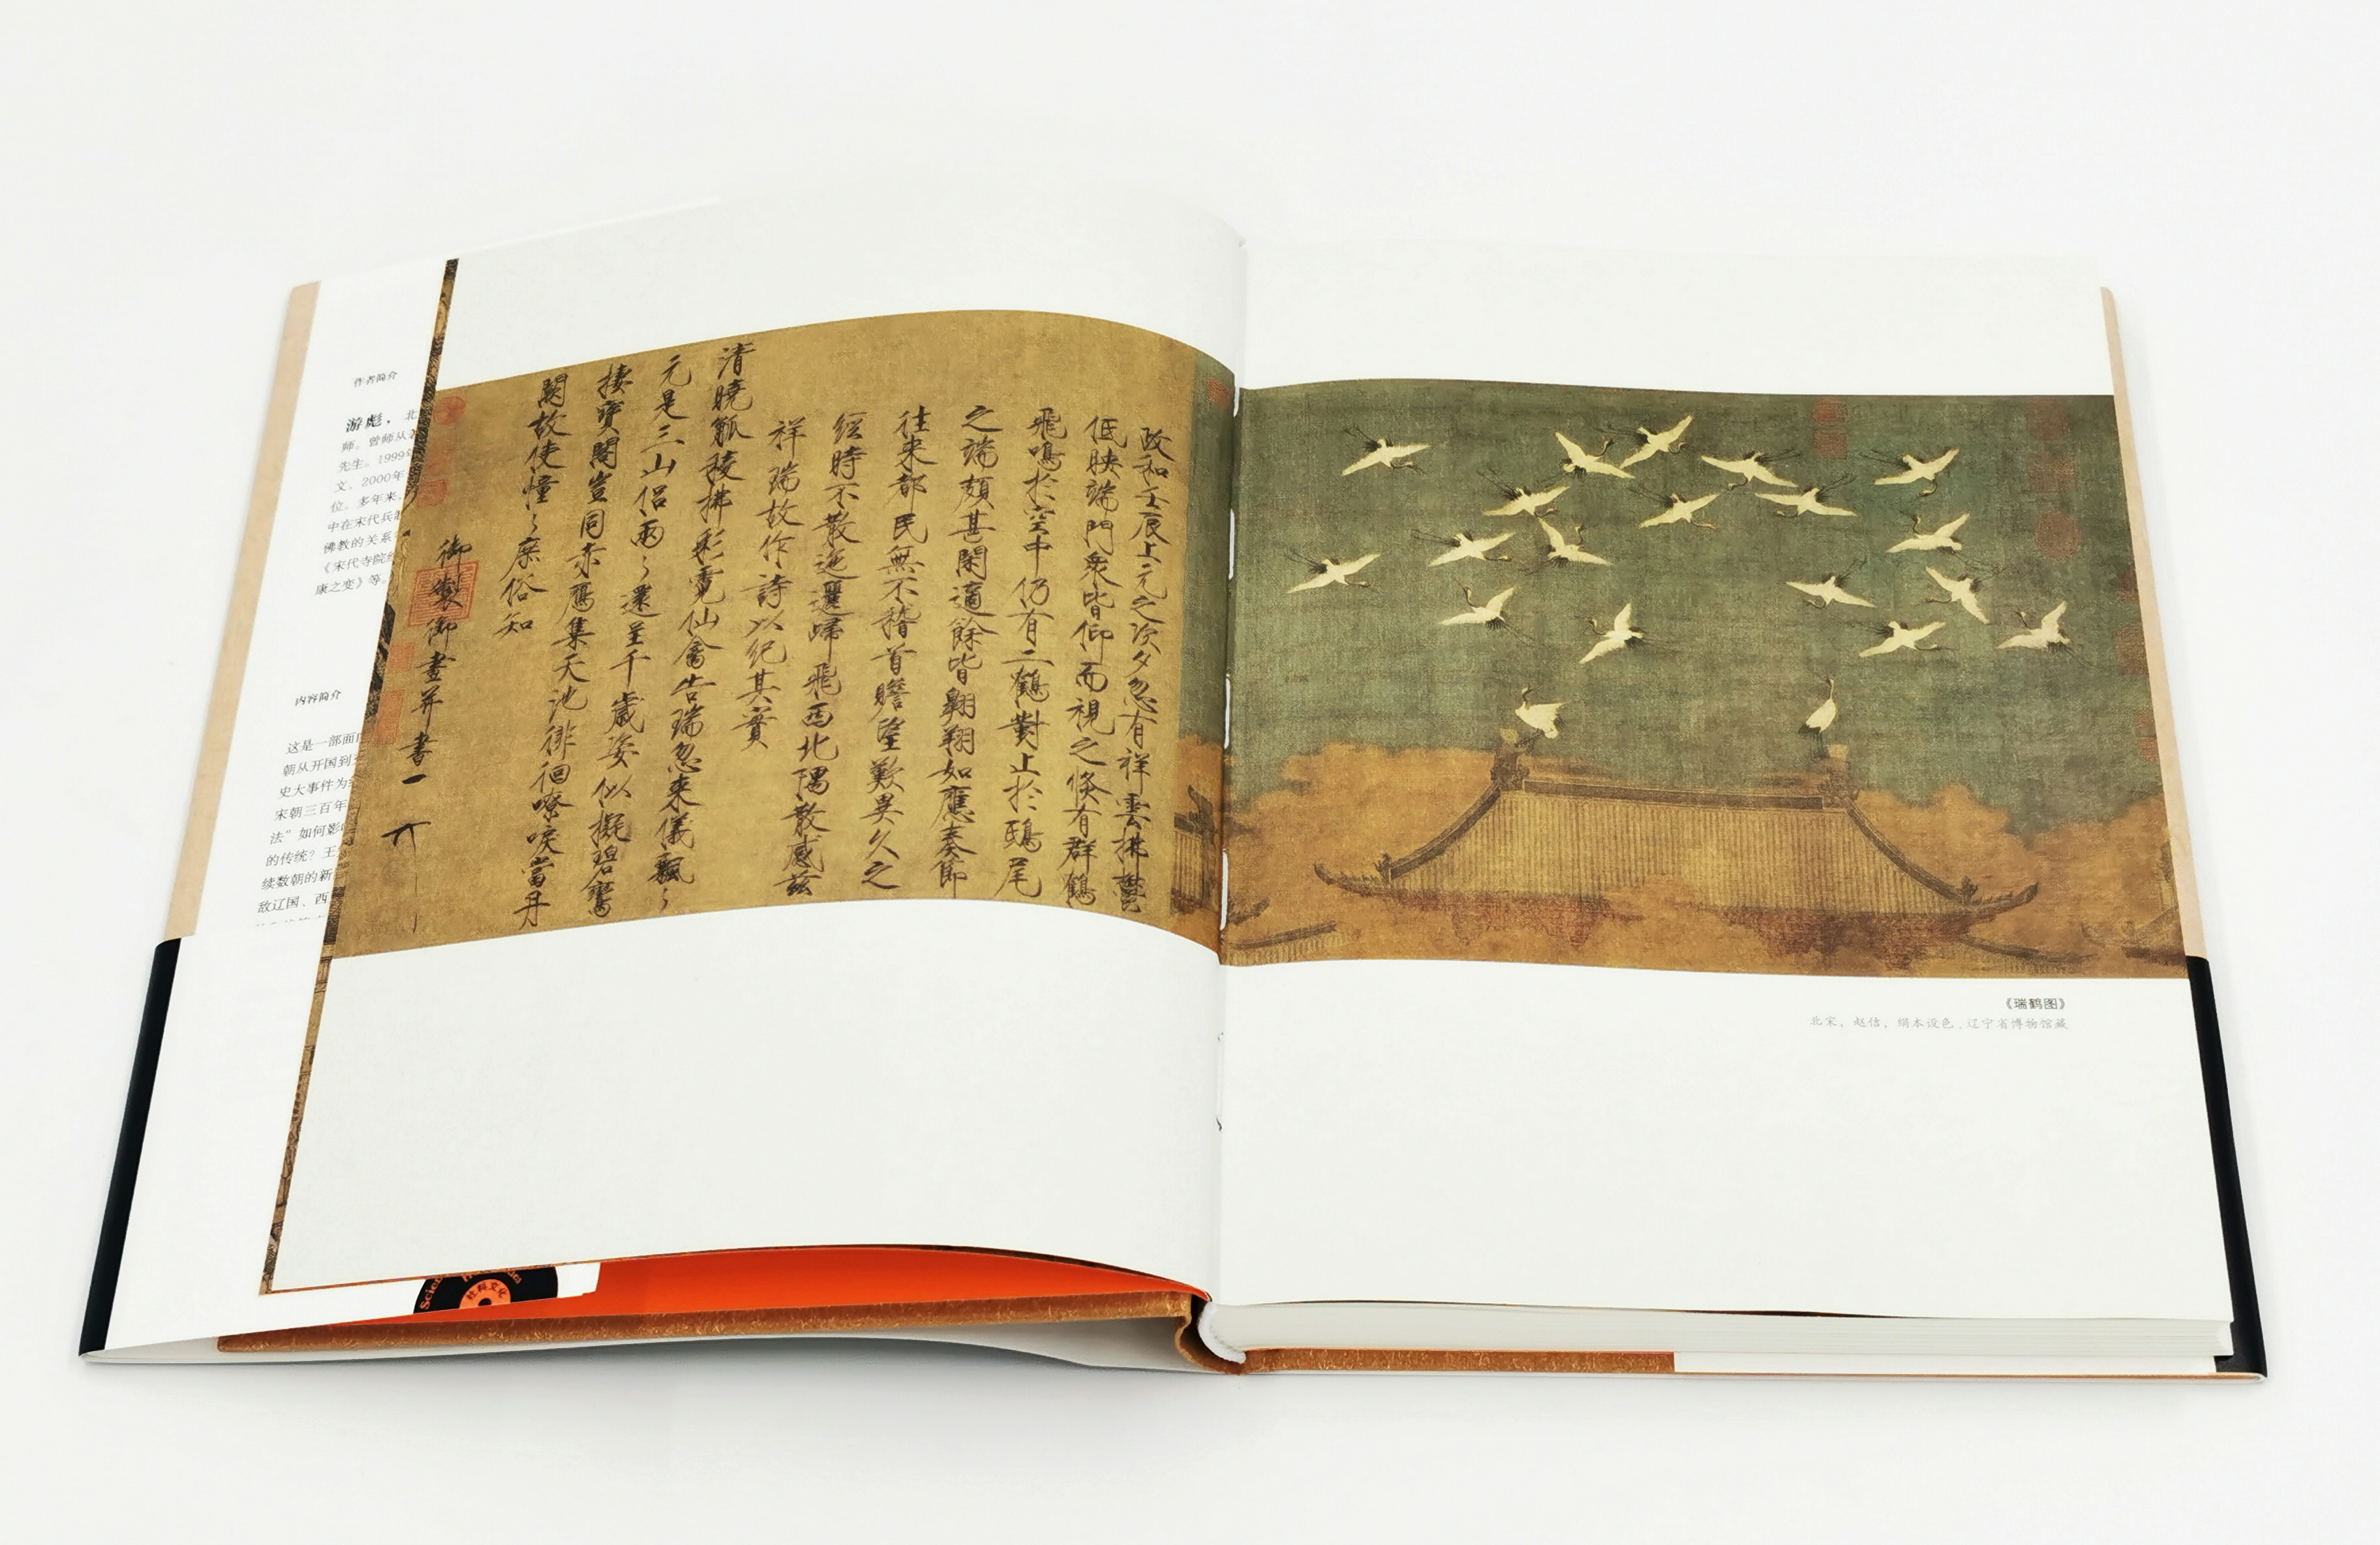 作者简介
游彪，北
师。曾师从
先生。1999
文，2000年
位。多年来，
中在宋代兵
佛教的关系
《宋代寺院
康之变》等。
内容简介
这是一部面
朝从开国到
史大事件为
宋朝三百年
法”如何影
的传统？王
续数朝的新
敌辽国、西
政和壬辰上元之次夕忽有祥雲拂鬱
低映端門衆皆仰而視之倏有群鶴
飛鳴於空中仍有二鶴對止於鴟尾
之端頗甚閑適餘皆翱翔如應奏節
往来都民無不稽首瞻望歎異久之
經時不散迤邐歸飛西北隅散感兹
祥瑞故作詩以紀其實
清曉觚稜拂彩霓仙禽告瑞忽来儀飄〻
元是三山侣兩〻還呈千歲姿似擬碧鸞
棲寳閣豈同赤鴈集天池徘徊嘹唳當丹
闕故使憧〻庶俗知
御製御畫并書
《瑞鹤图》
北宋，赵佶，绢本设色，辽宁省博物馆藏
社科文化